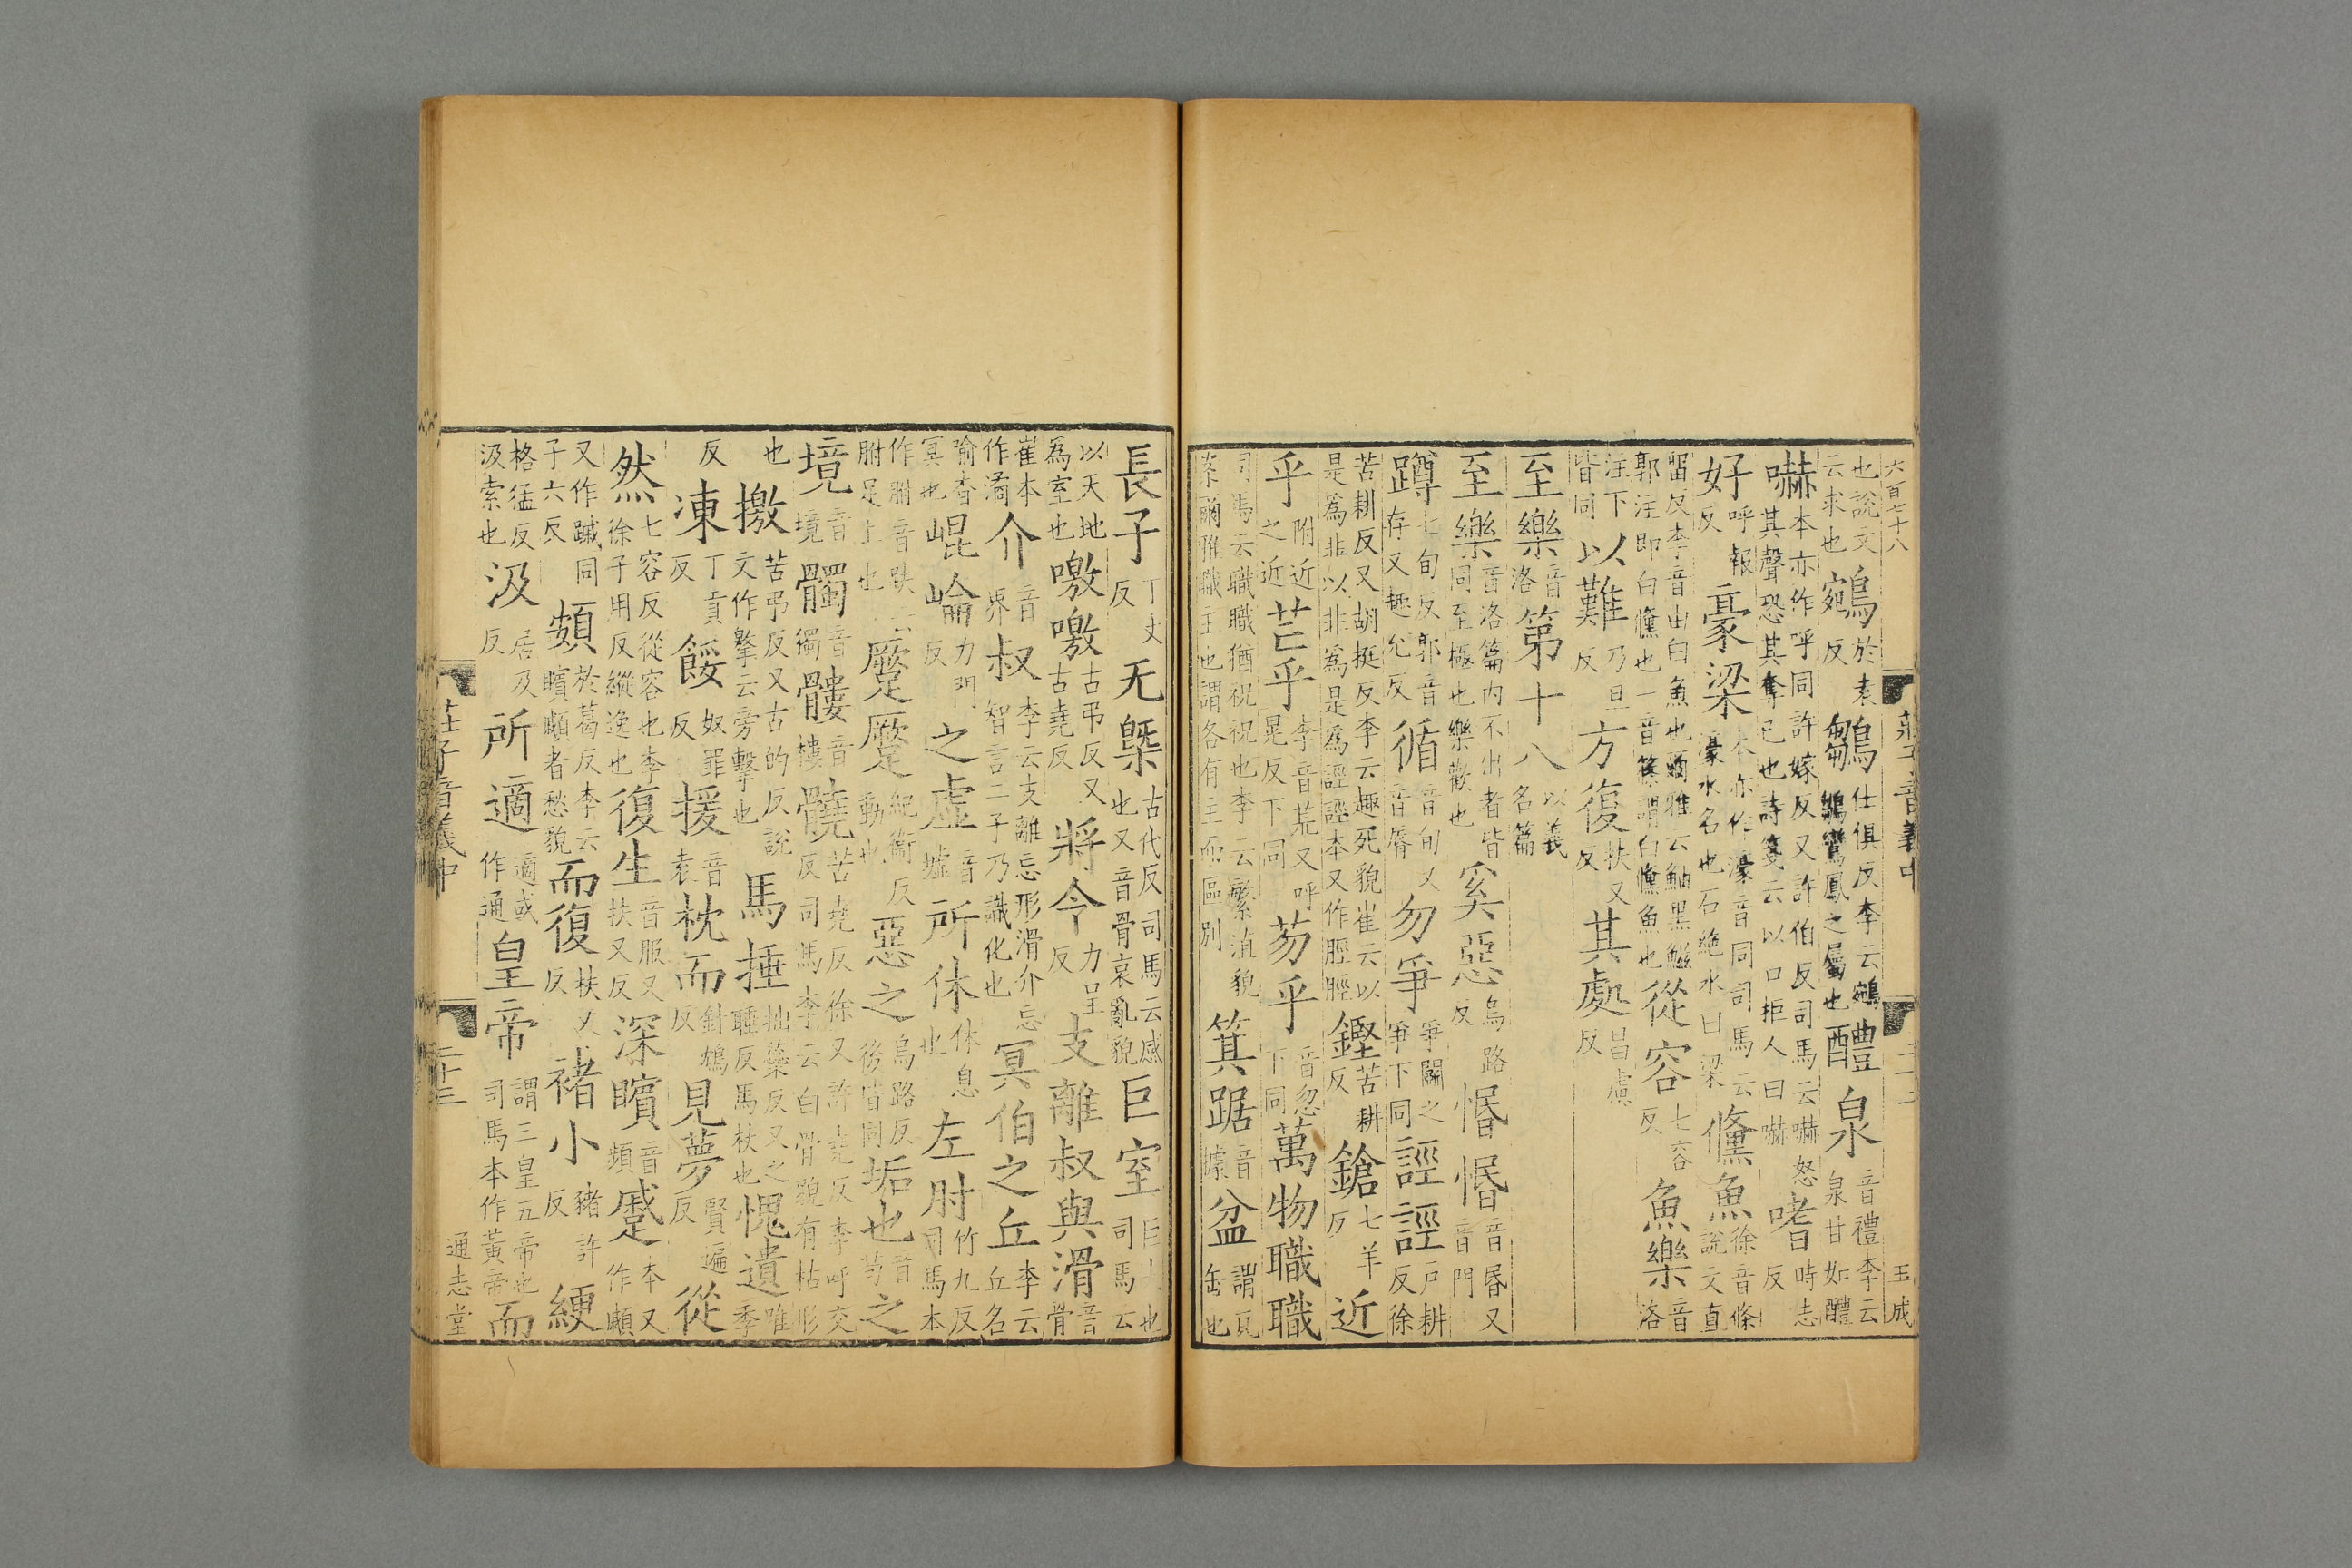 六百七十八 莊子音義中 二十二 玉成
也說文云求也鵷於袁反鶵仕俱反李云鵷鶵鸞鳳之屬也醴泉音禮李云泉甘如醴
嚇本亦作呼同許嫁反又許伯反司馬云嚇怒其聲恐其奪已也詩箋云以口拒人曰嚇嗜時志反
好呼報反豪梁本亦作濠音同司馬云濠水名也石絶水曰梁鯈魚徐音條說文直
留反李音由白魚也爾雅云鮂黑鰦郭注即白鯈也一音篠謂白鯈魚也從容七容反魚樂音洛
注下皆同以難乃旦反方復扶又反其處昌慮反
至樂音洛第十八以義名篇
至樂音洛篇内不出者皆同至極也樂歡也奚惡烏路反惽惽音昬又音門
蹲七旬反郭音存又趡允反循音旬又音脣勿爭爭鬭之爭下同誙誙戸耕反徐
苦耕反又胡挺反李云趣死貌崔云以是為非以非為是為誙誙本又作脛脛鏗苦耕反鎗七羊反近
乎附近之近芒乎李音荒又呼晃反下同芴乎音忽下同萬物職職
司馬云職職猶祝祝也李云繁殖貌案爾雅職主也謂各有主而區别箕踞音據盆謂瓦缶也
長子丁丈反无槩古代反司馬云感也又音骨哀亂貌巨室巨大也司馬云
以天地為室也噭噭古弔反又古堯反將令力呈反支離叔與滑音骨
崔本作潏介音界叔李云支離忘形滑介忘智言二子乃識化也冥伯之丘李云丘名
喻杳冥也崐崘力門反之虛音墟所休休息也左肘竹九反司馬本
作胕音趺云胕足上也蹷蹷紀衛反動也惡之烏路反後皆同垢也音茍之
境音境髑音獨髏音樓髐苦堯反徐又許堯反李呼交反司馬李云白骨貌有枯形
也撽苦弔反又古的反說文作擊云旁擊也馬捶拙蘂反又之睡反馬杖也愧遺唯季
反凍丁貢反餧奴罪反援音袁枕而針鴆反見夢賢遍反從
然七容反從容也李徐子用反縱逸也復生音服又扶又反深矉音頻蹙本又作顣
又作蹴同子六反頞於葛反李云矉顣者愁貌而復扶又反褚小豬許反綆
格猛反汲索也汲居及反所適適或作通皇帝謂三皇五帝也司馬本作黃帝而
莊子音義中 二十三 通志堂